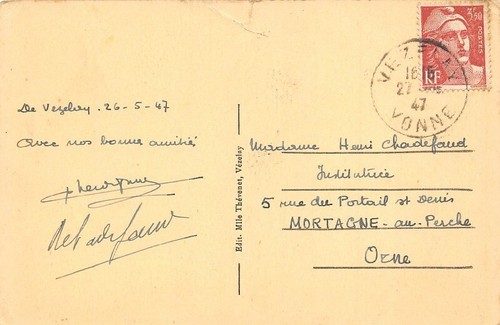 De Vezelay. 26-5-47
Avec nos bonnes amitiés
Edit. Mlle Thévenet, Vézelay
3F50
POSTES
RF
VEZELAY
27
47
YONNE
Madame Henri Chadefaud
Institutrice
5 rue du Portail St Denis
MORTAGNE-au-Perche
Orne